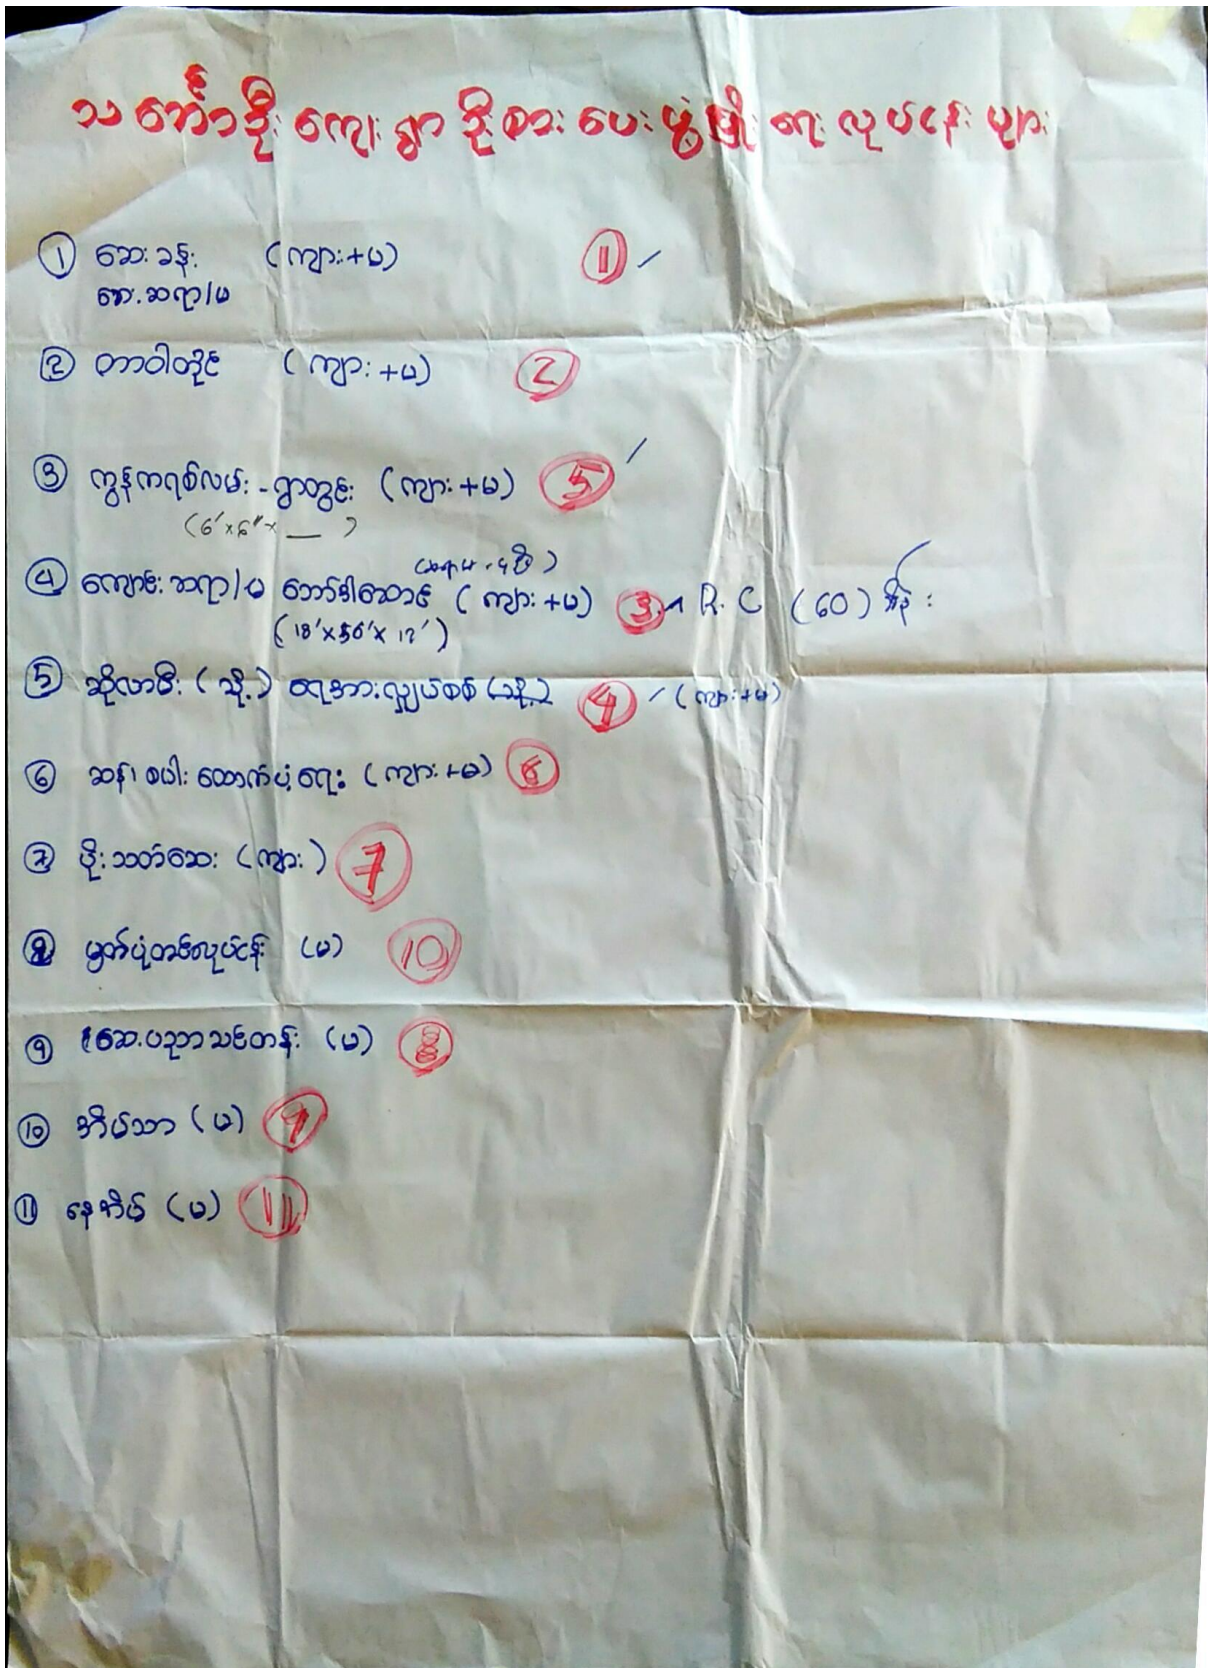 သင်္ဘောဦး ကျေးရွာ ဦးစားပေး ဖွံ့ဖြိုးရေး လုပ်ငန်းများ
① ဆေးခန်း (ကျား+မ) ①
ဆေး.ဆရာ/မ
② တာဝါတိုင် (ကျား+မ) ②
③ ကွန်ကရစ်လမ်း - ရွာတွင်း (ကျား+မ) ⑤
(6'×6"× __ )
④ ကျောင်းဆရာ/မ ဘော်ဒါဆောင် (ကျား+မ) ③ R.C (60) သိန်း
(18'×50'×12')
⑤ ဆိုလာမီး (သို့) ထရန်စဖော်မာ ④ (ကျား+မ)
⑥ ဆန်၊ စပါး ထောက်ပံ့ရေး (ကျား+မ) ⑥
⑦ ပိုးသတ်ဆေး (ကျား) ⑦
⑧ မှတ်ပုံတင်လုပ်ငန်း (မ) ⑩
⑨ ဆေးပညာသင်တန်း (မ) ⑧
⑩ အိမ်သာ (မ) ⑨
⑪ နေအိမ် (မ) ⑪